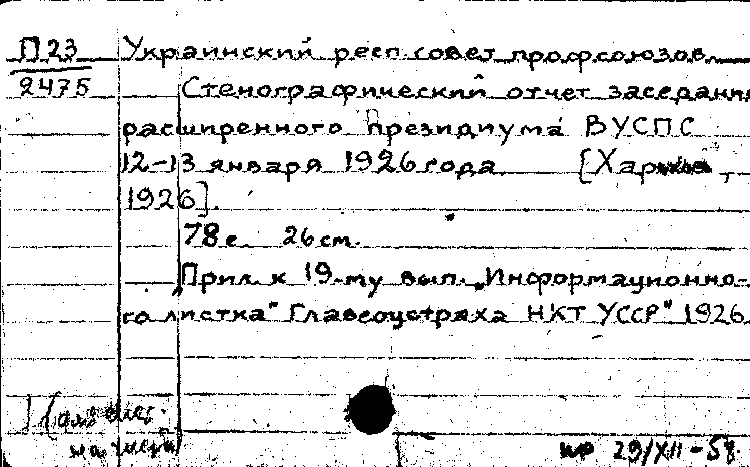 П23 Украинский респ. совет профсоюзов.
2475 Стенографический отчет заседани
расширенного президиума ВУСПС
12-13 января 1926 года [Харьков,
1926].
78 с. 26 см.
Прил. к 19-му вып. „Информационно-
го листка" Главсоцстраха НКТ УССР" 1926
29/XII-58